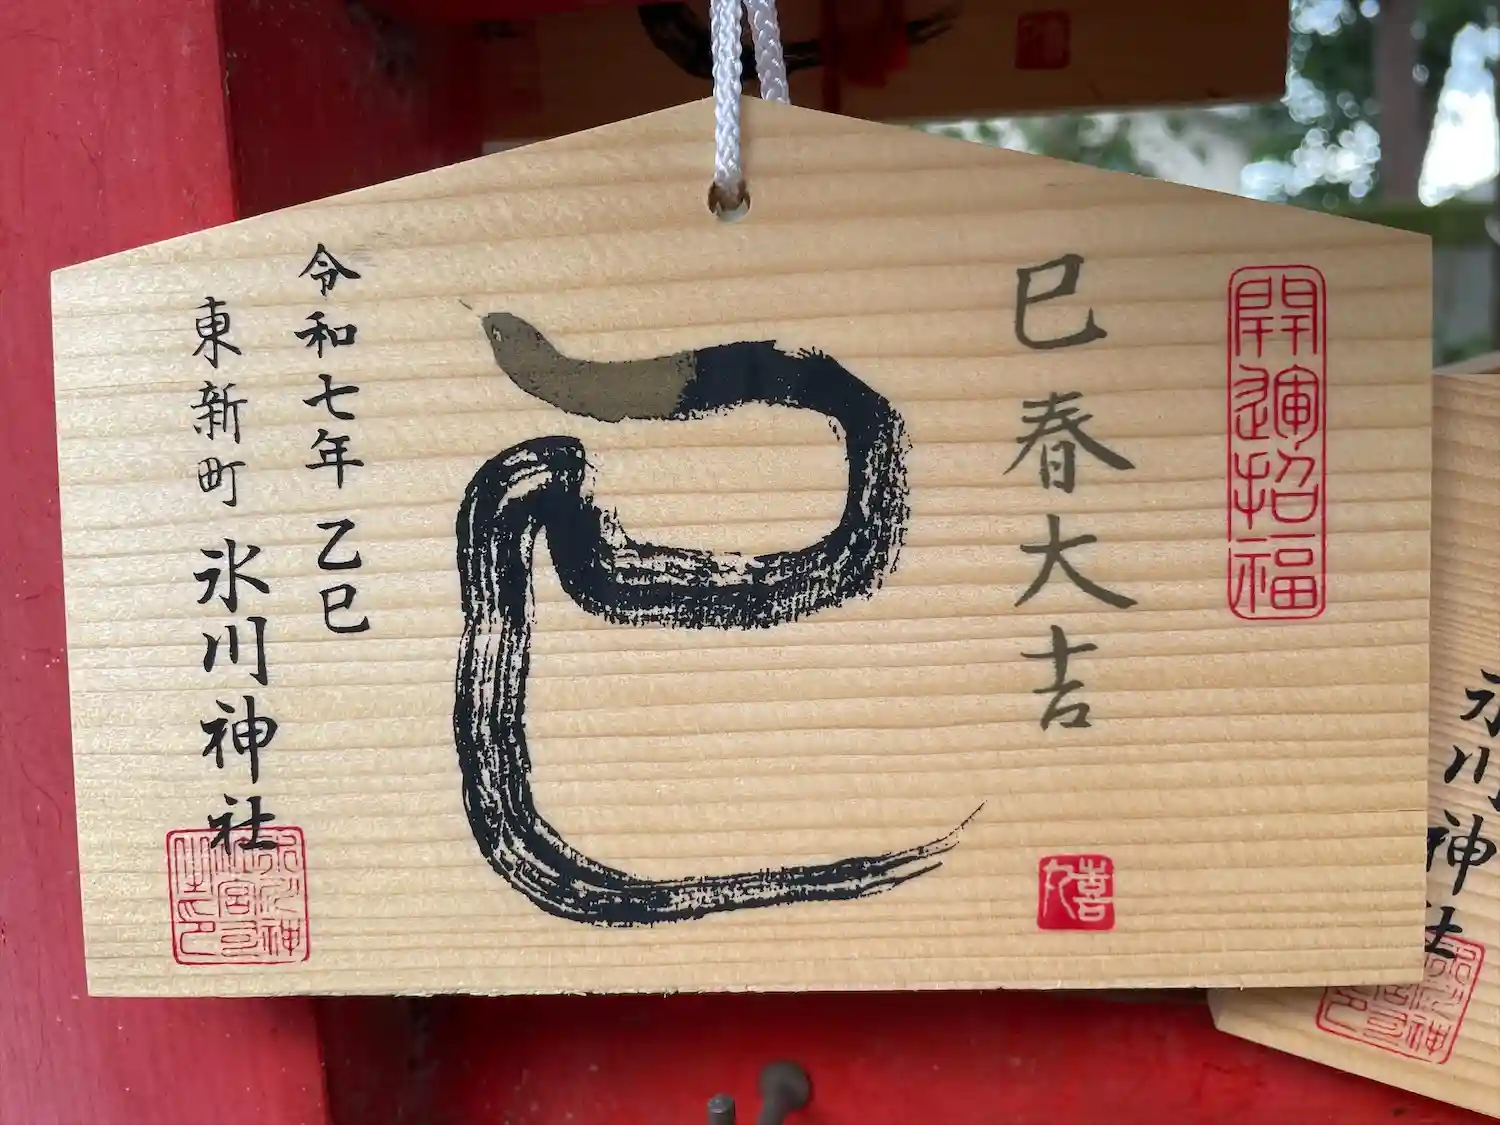 開運招福
巳春大吉
喜丸
令和七年 乙巳
東新町 氷川神社
氷川神社